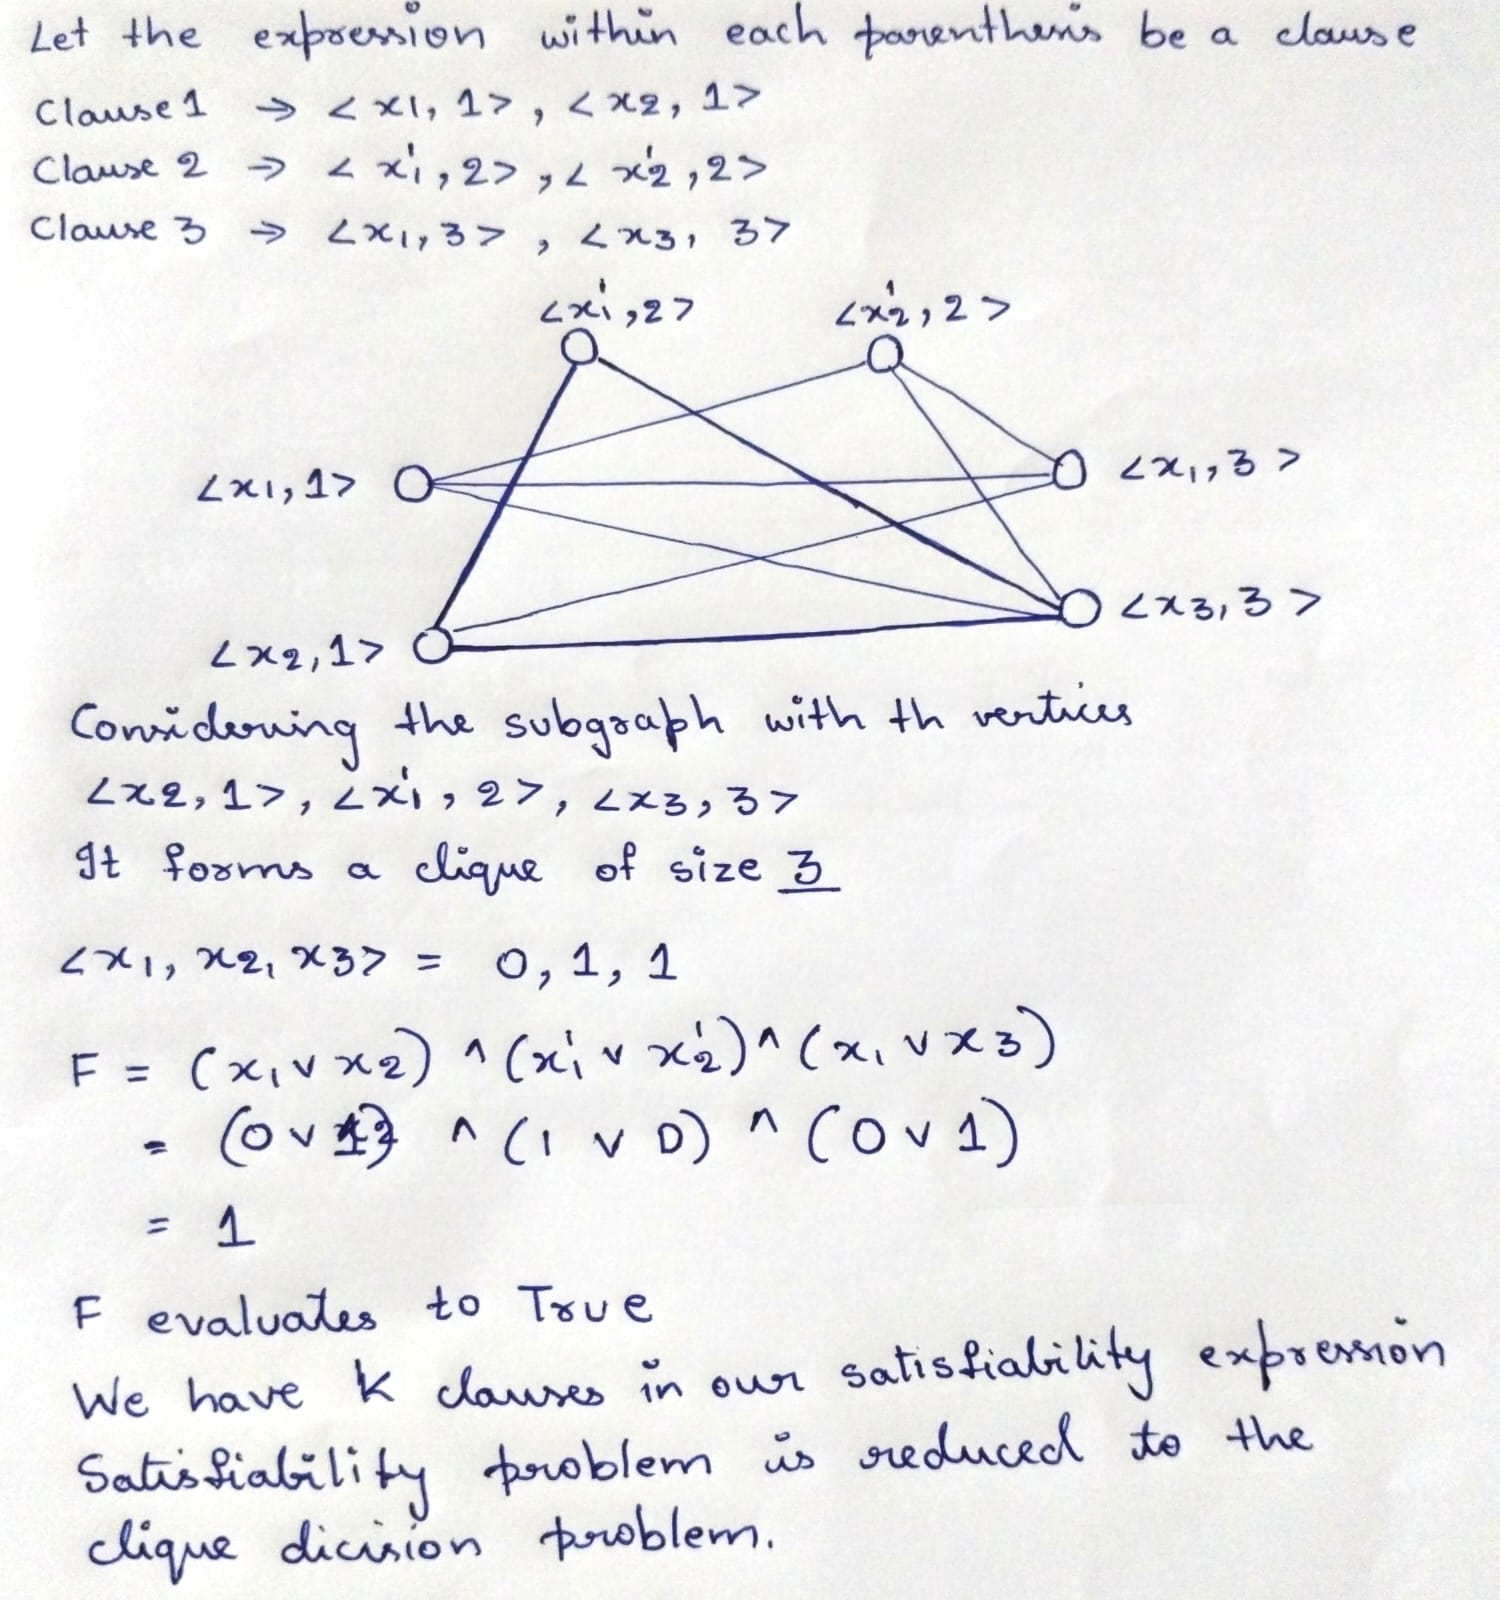 Let the expression within each parenthesis be a clause
Clause 1 → <x1, 1>, <x2, 1>
Clause 2 → <x1', 2>, <x2', 2>
Clause 3 → <x1, 3>, <x3, 3>
<x1', 2> <x2', 2>
<x1, 1> <x1, 3>
<x3, 3>
<x2, 1>
Considering the subgraph with th vertices
<x2, 1>, <x1', 2>, <x3, 3>
It forms a clique of size 3
<x1, x2, x3> = 0, 1, 1
F = (x1 v x2) ^ (x1' v x2') ^ (x1 v x3)
= (0 v 1) ^ (1 v 0) ^ (0 v 1)
= 1
F evaluates to True
We have k clauses in our satisfiability expression
Satisfiability problem is reduced to the
clique dicision problem.